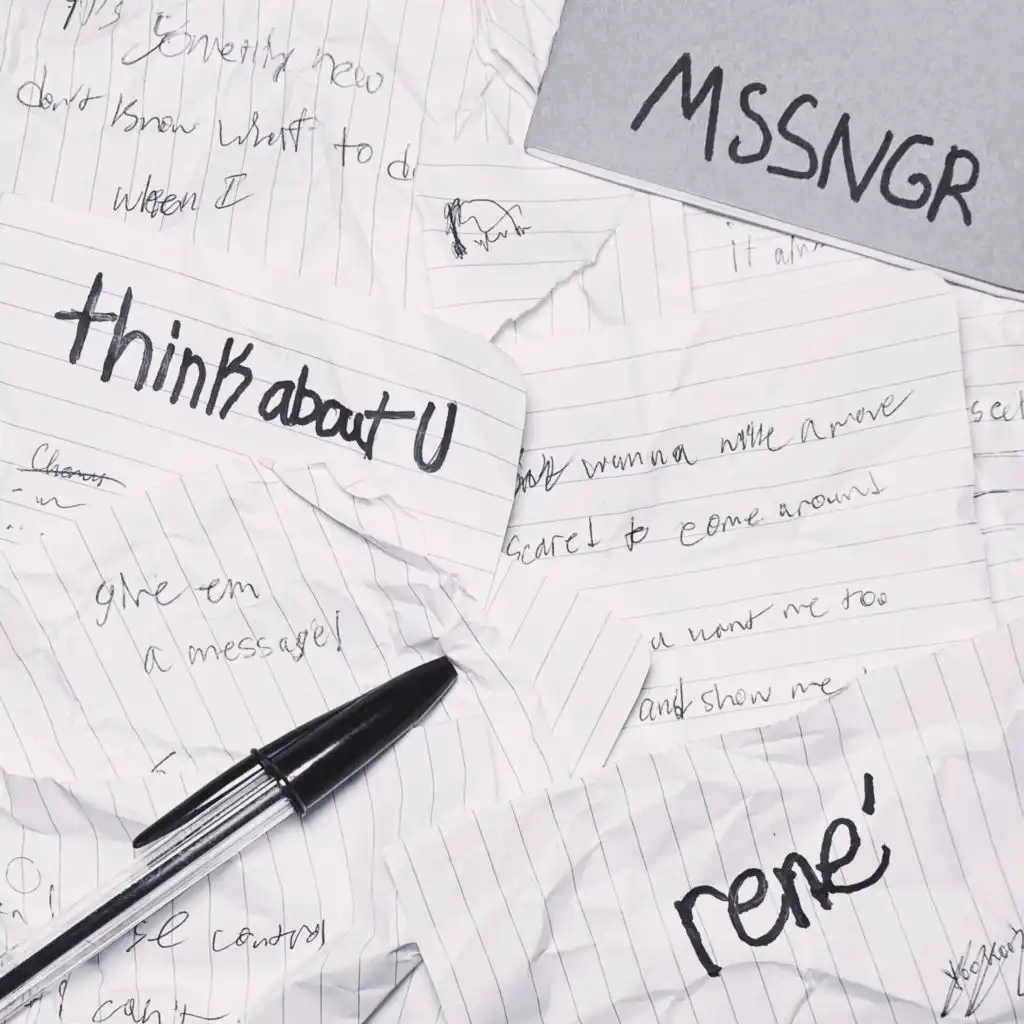 Something new
don't know what to
when I
MSSNGR
think about U
wanna make a move
scared to come around
give em
a message!
u want me too
and show me
rené
control
can't